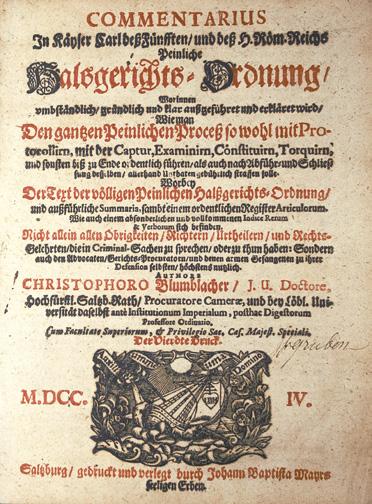 COMMENTARIUS
In Käyser Carl deß Fünfften/ und deß H. Röm. Reichs
Peinliche
Halsgerichts-Ordnung/
Worinnen
umbständlich/ gründlich und klar außgeführet und erkläret wird/
Wie man
Den gantzen Peinlichen Proceß so wohl mit Pro-
tocollirn, mit der Captur, Examinirn, Constituirn, Torquirn,
und sonsten biß zu Ende ordentlich führen/ als auch nach Abführ- und Schlies-
sung deßselben/ allerhand Unthaten gebührlich straffen solle.
Worbey
Der Text der völligen Peinlichen Halßgerichts-Ordnung/
und außführliche Summaria, sambt einem ordentlichen Register Articulorum.
Wie auch einem absonderlichen und vollkommenen Indice Rerum
& Verborum sich befinden.
Nicht allein allen Obrigkeiten/ Richtern/ Urtheilern/ und Rechts-
Gelehrten/ die in Criminal-Sachen zu sprechen/ oder zu thun haben: Sondern
auch den Advocaten/ Gerichts-Procuratorn/ und denen armen Gefangenen zu ihrer
Defension selbsten/ höchstens nutzlich.
AUTHORE
CHRISTOPHORO Blumblacher/ J. U. Doctore,
Hochfürstl. Saltzb. Rath/ Procuratore Cameræ, und bey Löbl. Uni-
versität daselbst antè Institutionum Imperialium, posthac Digestorum
Professore Ordinario,
Cum Facultate Superiorum, & Privilegio Sac. Cæs. Majest. Speciali.
Der Vierdte Druck.
M.DCC. IV.
Saltzburg/ gedruckt und verlegt durch Johann Baptista Mayrs
seeligen Erben.